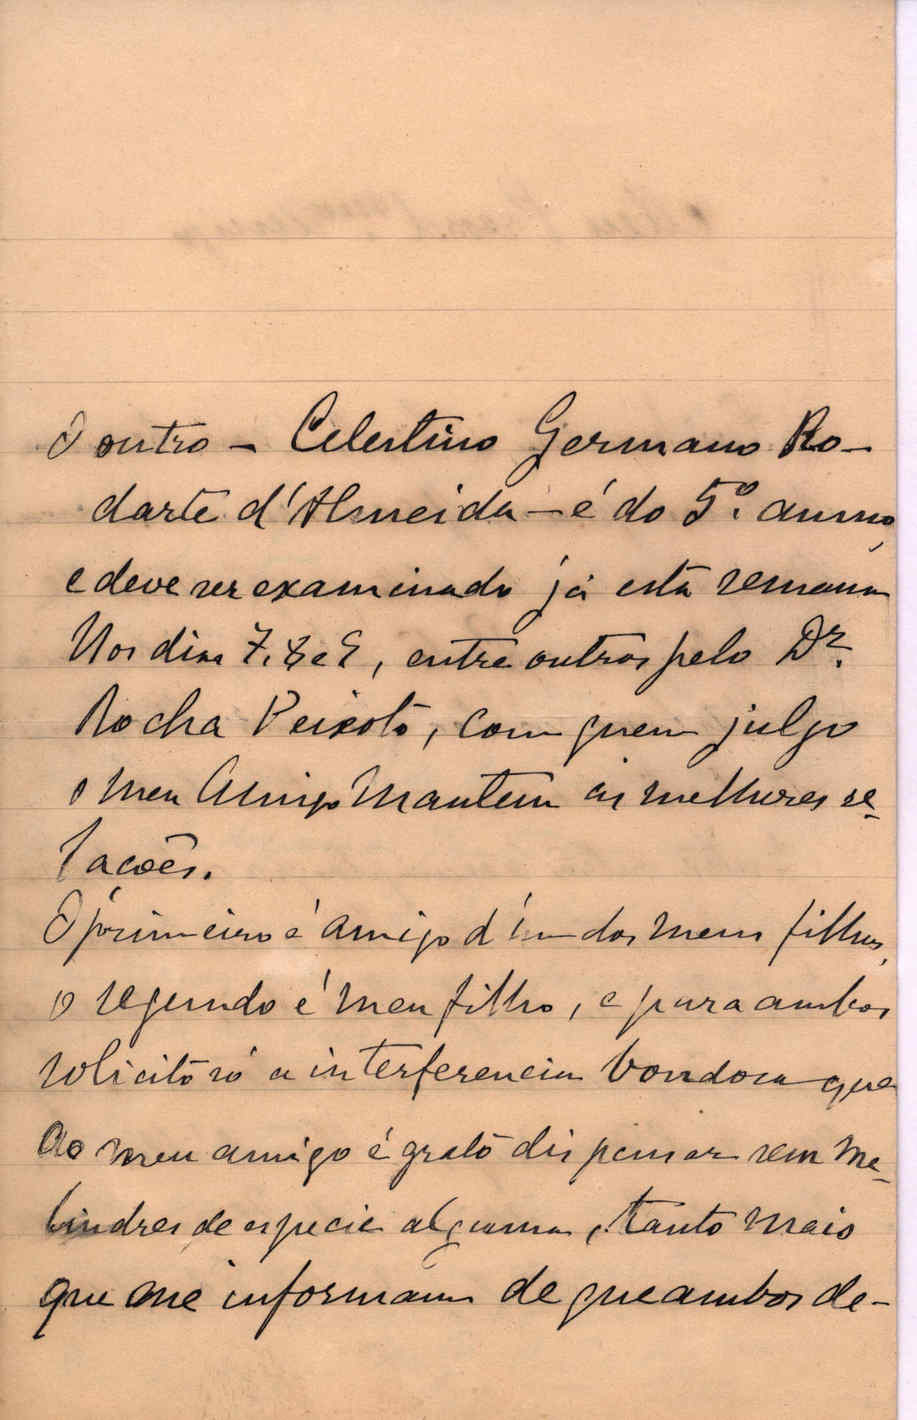 O outro – Celestino Germano Ro-
darte d'Almeida – é do 5º. anno,
e deve ser examinado já esta semana
Nos dias 7, 8 e 9, entre outros pelo Dr.
Rocha Peixoto, com quem julgo
o meu Amigo mantem as melhores re-
lacoēs.
O primeiro é amigo d'um dos meus filhos,
o segundo é meu filho, e para ambos
solicito só a interferencia bondosa que
ao meu amigo é grato dispensar sem me-
lindres de especie alguma, tanto mais
que me informam de que ambos de-